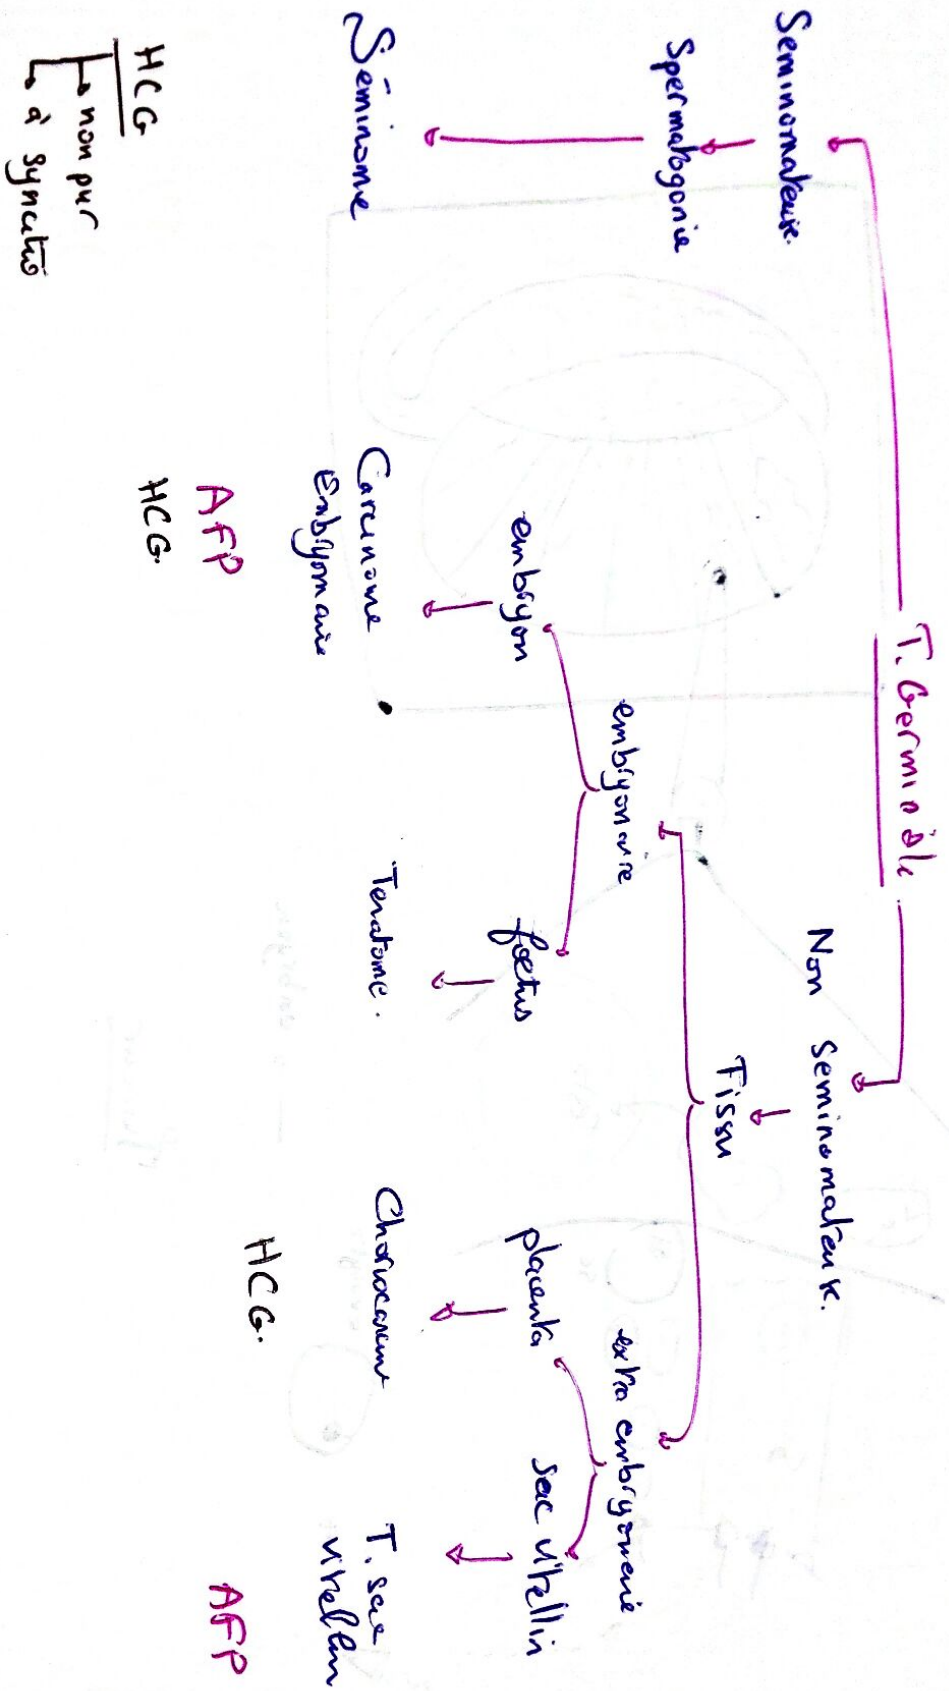 T. Germinale
Seminomateux.
Non Seminomateux.
Spermatogonie
Tissu
embryonaire
extra embryonaire
embryon
foetus
placenta
sac vitellin
Séminome
Carcinome
Embryonaire
Teratome.
Choriocarcinome
T. sac
vitellin
AFP
HCG.
HCG.
AFP
HCG
non pur
à syncitio